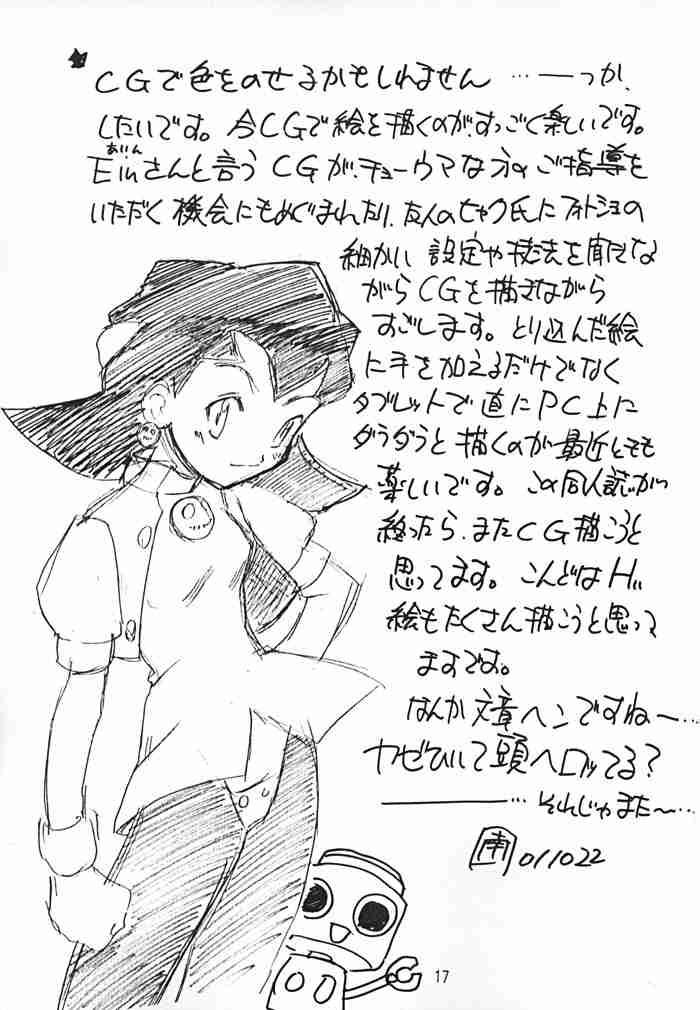 CGで色をのせるかもしれません …―っか、
したいです。今CGで絵を描くのが、すっごく楽しいです。
あいん
Einさんと言うCGが、チョーウマな方のご指導を
いただく機会にもめぐまれたり、友人のヒャク氏にフォトショの
細かい設定や技法を聞きな
がらCGを描きながら
すごします。とり込んだ絵
に手を加えるだけでなく
タブレットで直にPC上に
ダラダラと描くのが最近とても
楽しいです。この同人誌が
終ったら、またCG描こうと
思ってます。こんどはHい
絵もたくさん描こうと思って
ますです。
なんか文章ヘンですねー…
カゼひいて頭ヘロってる?
―…それじゃまた～…
南 011022
17